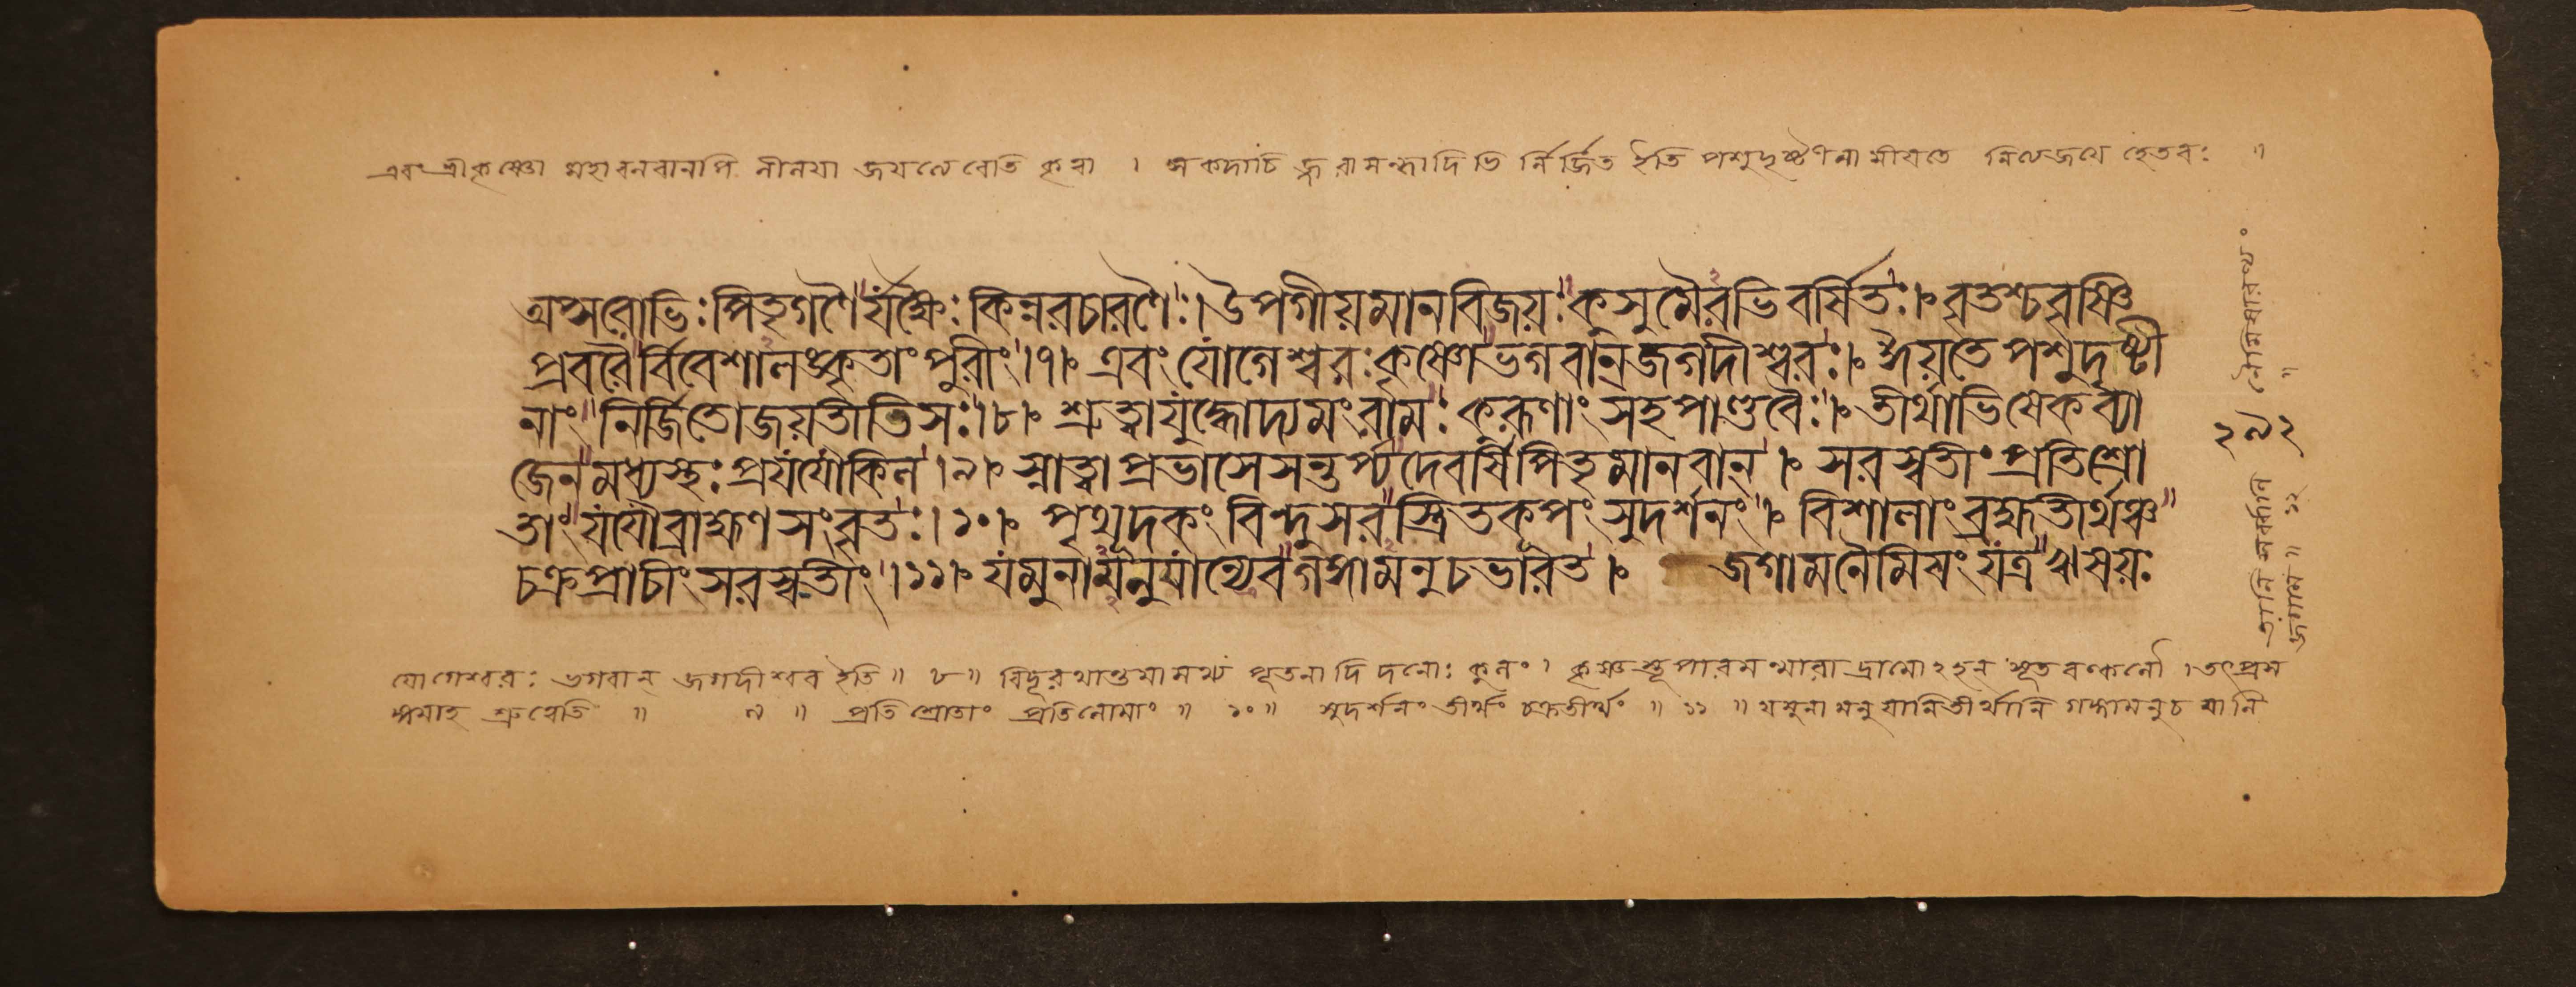 এবং শ্রীকৃষ্ণো মহাবলবানপি লীলয়া জয়ত্যেবেতি কৃত্বা । স কদাচি জ্জরাসন্ধাদিভি র্নির্জিত ইতি পশুদৃষ্টীনামীয়তে হেতবঃ ॥
অপ্সরোভিঃ পিতৃগণৈর্যক্ষৈঃ কিন্নরচারণৈঃ । উপগীয়মানবিজয়ঃ কুসুমৈরভিবর্ষিতঃ । বৃতশ্চবৃষ্ণি
প্রবরৈর্বিবেশালঙ্কৃতাং পুরীং । ৭ । এবং যোগেশ্বরঃ কৃষ্ণো ভগবান্ জগদীশ্বরঃ । ঈয়তে পশুদৃষ্টী
নাং নির্জিতো জয়তীতি সঃ । ৮ । শ্রুত্বা যুদ্ধোদ্যমং রামঃ কুরূণাং সহ পাণ্ডবৈঃ । তীর্থাভিষেকব্যা
জেন মধ্যস্থঃ প্রযযৌ কিল । ৯ । স্নাত্বা প্রভাসে সন্তর্প্য দেবর্ষিপিতৃমানবান্ । সরস্বতীং প্রতিশ্রো
তাং যযৌ ব্রাহ্মণসংবৃতঃ । ১০ । পৃথূদকং বিন্দুসরস্ত্রিতকূপং সুদর্শনং । বিশালাং ব্রহ্মতীর্থঞ্চ
চক্রপ্রাচীং সরস্বতীং । ১১ । যমুনামনুযান্যেব গঙ্গামনুচ ভারত । জগাম নৈমিষং যত্র ঋষয়ঃ
যোগেশ্বরঃ ভগবান্ জগদীশ্বর ইতি ॥ ৮ ॥ বিদূরথান্তমাসখ্য পূতনাদি কুলং । কৃষ্ণ রামো ২হন্ সূতবল্কলৌ । তৎপ্রস
ঙ্গমাহ শ্রুত্বেতি ॥ ৯ ॥ প্রতিশ্রোতাং প্রতিলোমাং ॥ ১০ ॥ সুদর্শনং তীর্থং চক্রতীর্থং ॥ ১১ ॥ যমুনামনু যানি তীর্থানি গঙ্গামনুচ যানি
তানি সর্ব্বাণি নৈমিষারণ্যং
জগাম ॥ ১২ ॥
২৯২